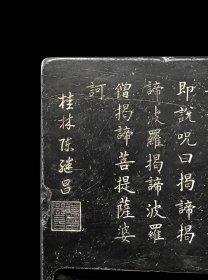 即說呪曰揭諦揭
諦波羅揭諦波羅
僧揭諦菩提薩婆
訶
桂林陳繼昌